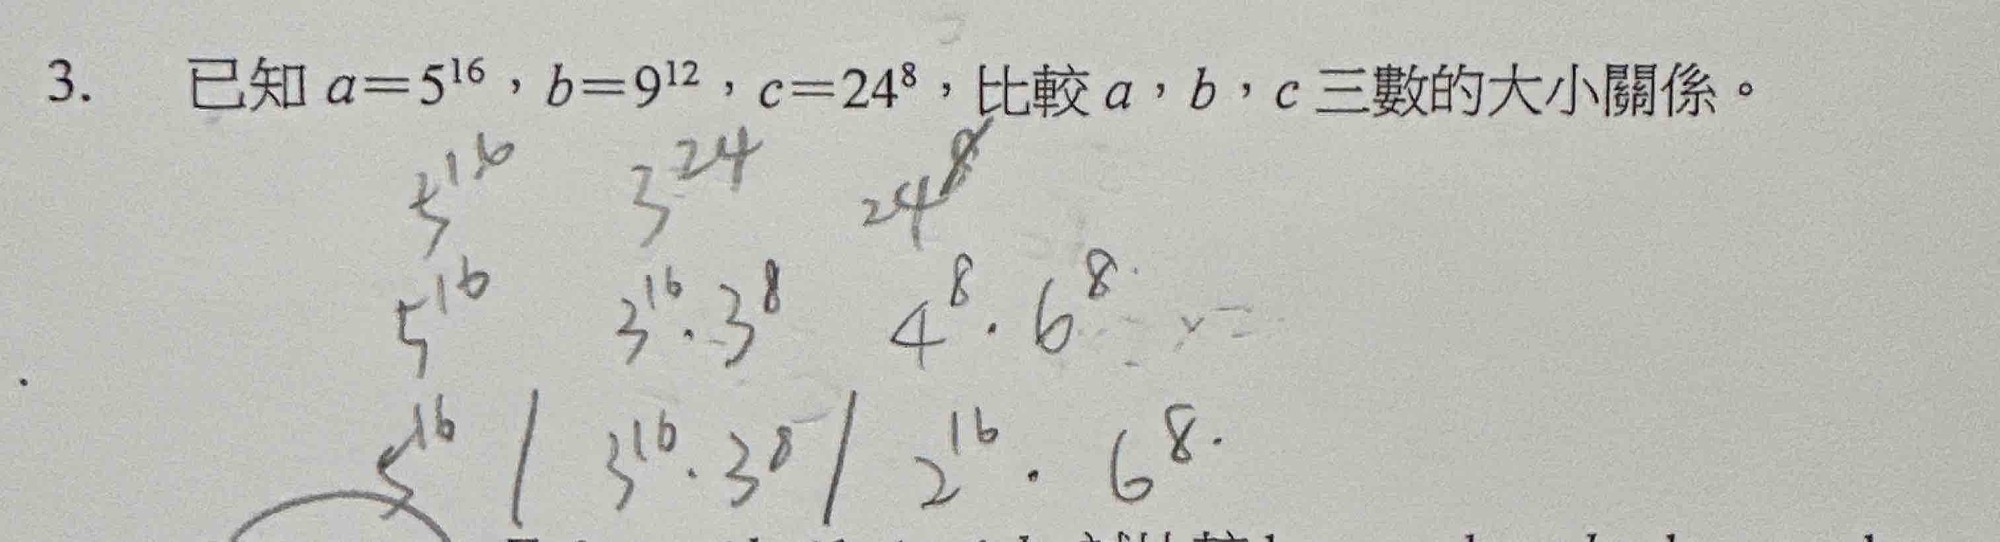 3. 已知 a=5¹⁶，b=9¹²，c=24⁸，比較 a，b，c 三數的大小關係。
5¹⁶ 3²⁴ 24⁸
5¹⁶ 3¹⁶·3⁸ 4⁸·6⁸
5¹⁶ / 3¹⁶·3⁸ / 2¹⁶·6⁸